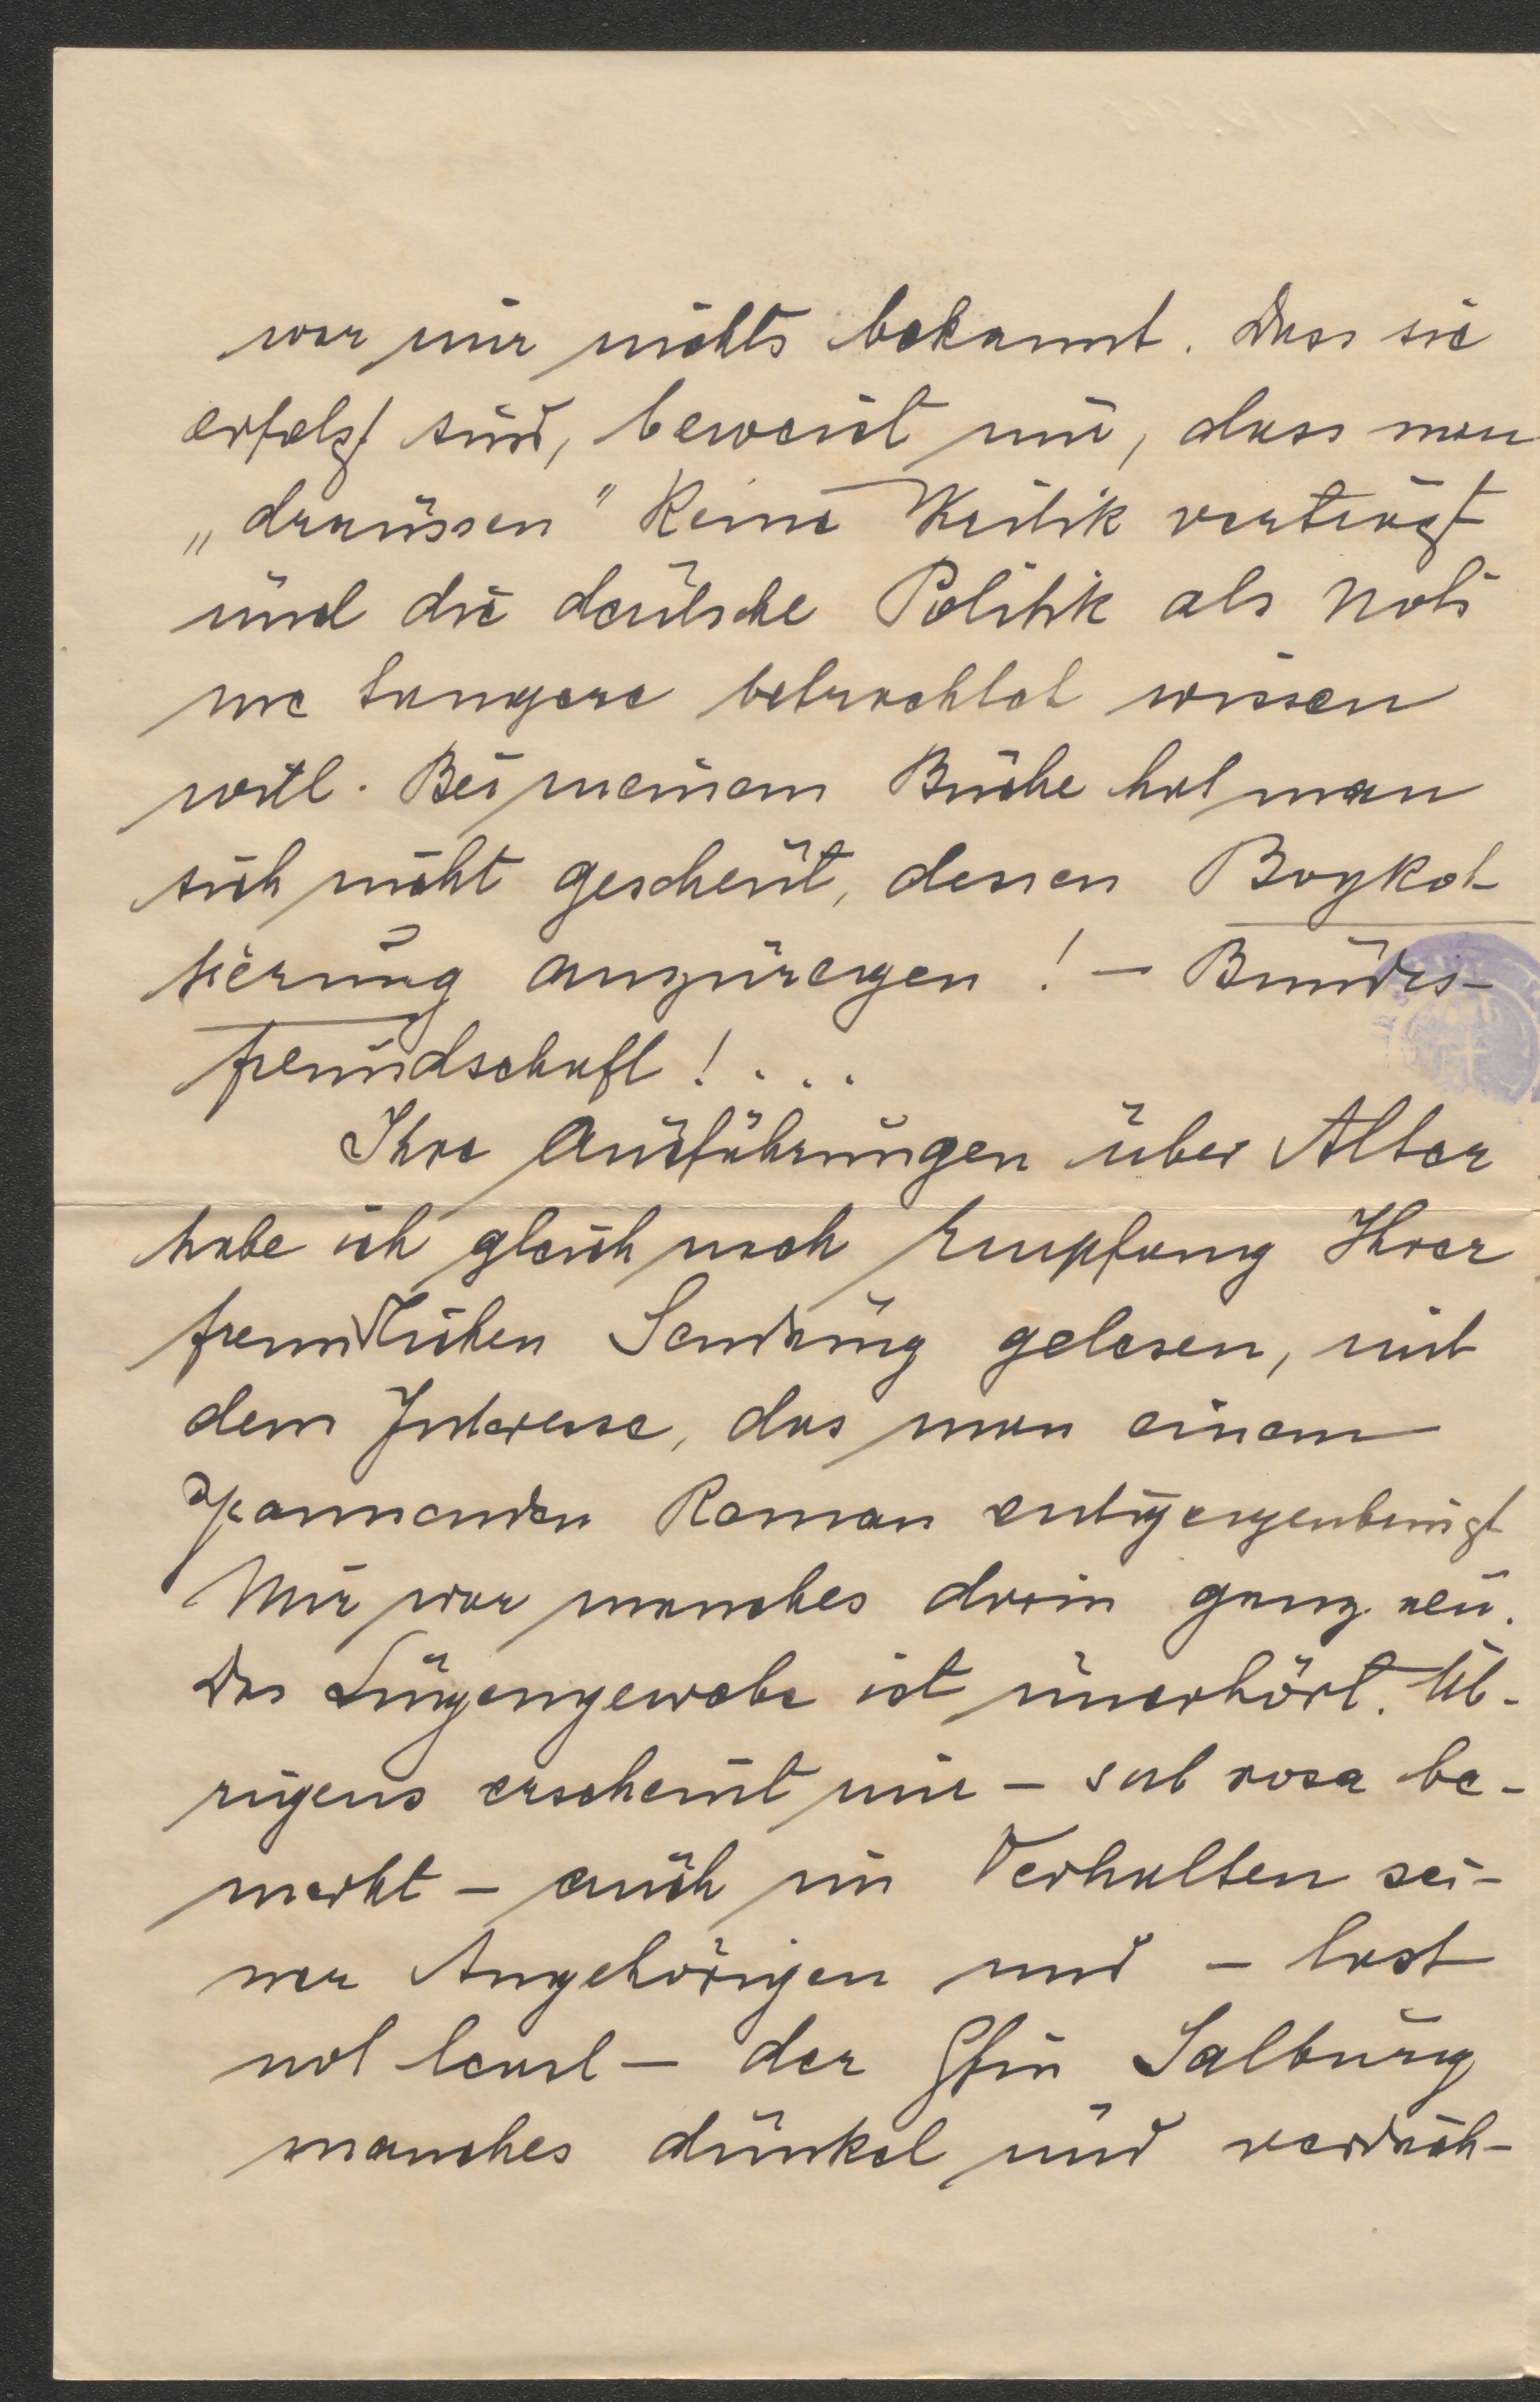 war mir nichts bekannt. Dass sie
erfolgt sind, beweist mir, dass man
„draussen" keine Kritik verträgt
und die deutsche Politik als Noli
me tangere betrachtet wissen
will. Bei meinem Buche hat man
sich nicht gescheut, dessen Boykot-
tierung anzuregen! – Bundes-
freundschaft!...
Ihre Ausführungen über Alter
habe ich gleich nach Empfang Ihrer
freundlichen Sendung gelesen, mit
dem Interesse, das man einem
spannenden Roman entgegenbringt
Mir war manches darin ganz neu.
Das Lügengewebe ist unerhört. Üb-
rigens erscheint mir – sub rosa be-
merkt – auch im Verhalten sei-
ner Angehörigen und – last
not least – der Gfin Salburg
manches dunkel und verdäch-